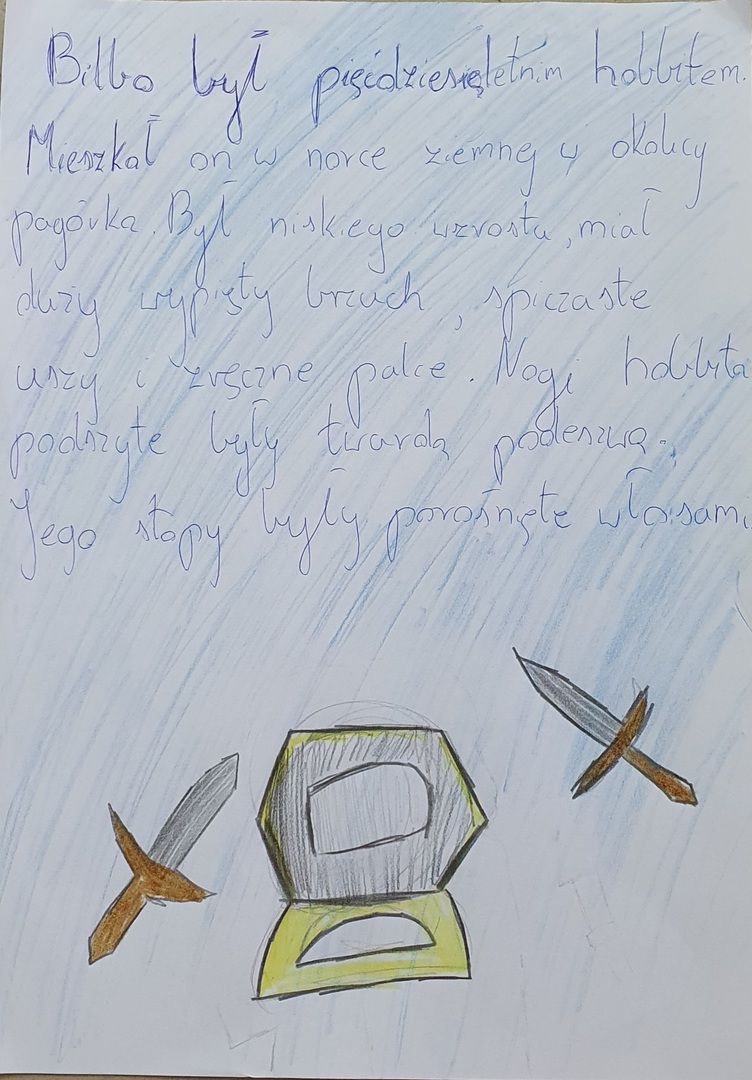 Bilbo był pięćdziesięletnim hobbitem.
Mieszkał on w norce ziemnej w okolicy
pagórka. Był niskiego wzrostu, miał
duży wypięty brzuch, spiczaste
uszy i zręczne palce. Nogi hobbita
podszyte były twardą podeszwą.
Jego stopy były porośnięte włosami